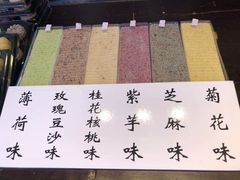 薄荷味
玫瑰豆沙味
桂花核桃味
紫芋味
芝麻味
菊花味